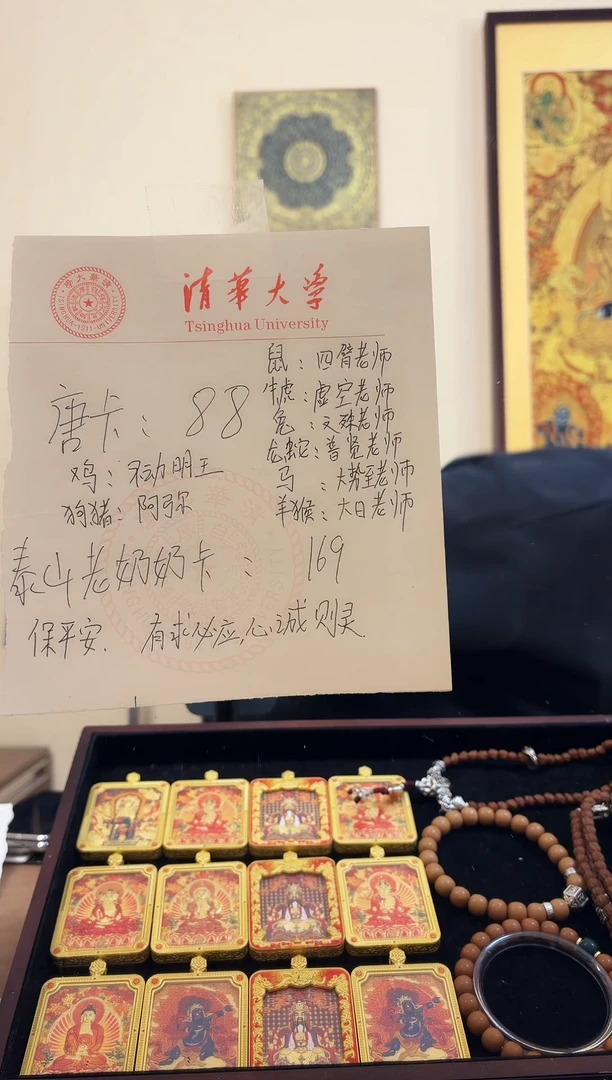 清华大学
Tsinghua University
唐卡：88
鸡：不动明王
狗猪：阿弥
鼠：四臂老师
牛虎：虚空老师
兔：文殊老师
龙蛇：普贤老师
马：大势至老师
羊猴：大日老师
泰山老奶奶卡：169
保平安．有求必应，心诚则灵